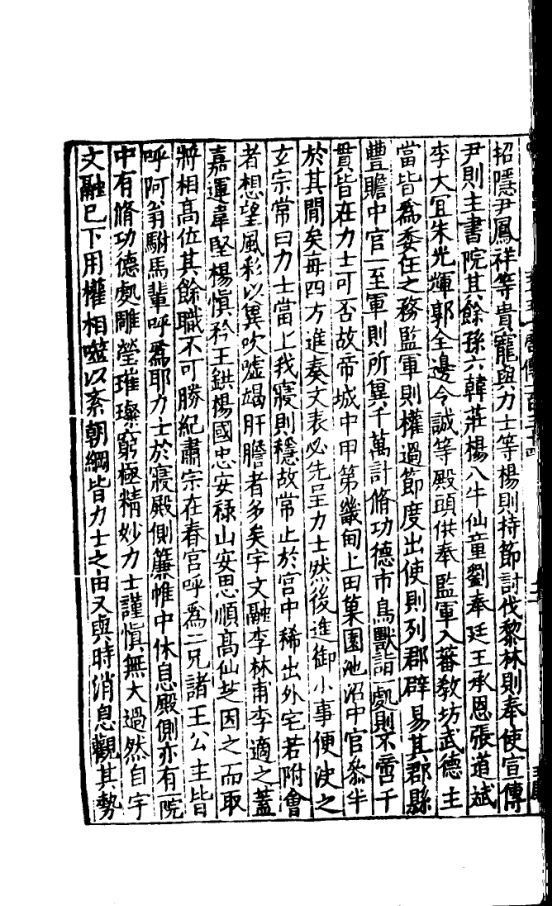 招隱尹鳳祥等貴寵與力士等楊則持節討伐黎林則奉使宣傳
尹則主書院其餘孫六韓莊楊八牛仙童劉奉廷王承恩張道斌
李大宜朱光輝郭全邊令誠等殿頭供奉監軍入蕃教坊武德主
當皆爲委任之務監軍則權過節度出使則列郡辟易其郡縣
豐贍中官一至軍則所兾千萬計脩功德市鳥獸詣一處則不啻千
貫皆在力士可否故帝城中甲第畿甸上田菓園池沼中官叅半
於其間矣每四方進奏文表必先呈力士然後進御小事便決之
玄宗常曰力士當上我寢則穩故常止於宮中稀出外宅若附會
者想望風彩以兾吹噓竭肝膽者多矣宇文融李林甫李適之蓋
嘉運韋堅楊慎矜王鉷楊國忠安祿山安思順高仙芝因之而取
將相高位其餘職不可勝紀肅宗在春宮呼爲二兄諸王公主皆
呼阿翁駙馬輩呼爲耶力士於寢殿側簾帷中休息殿側亦有院
中有脩功德處雕瑩璀璨窮極精妙力士謹慎無大過然自宇
文融已下用權相噬以紊朝綱皆力士之由又與時消息觀其勢